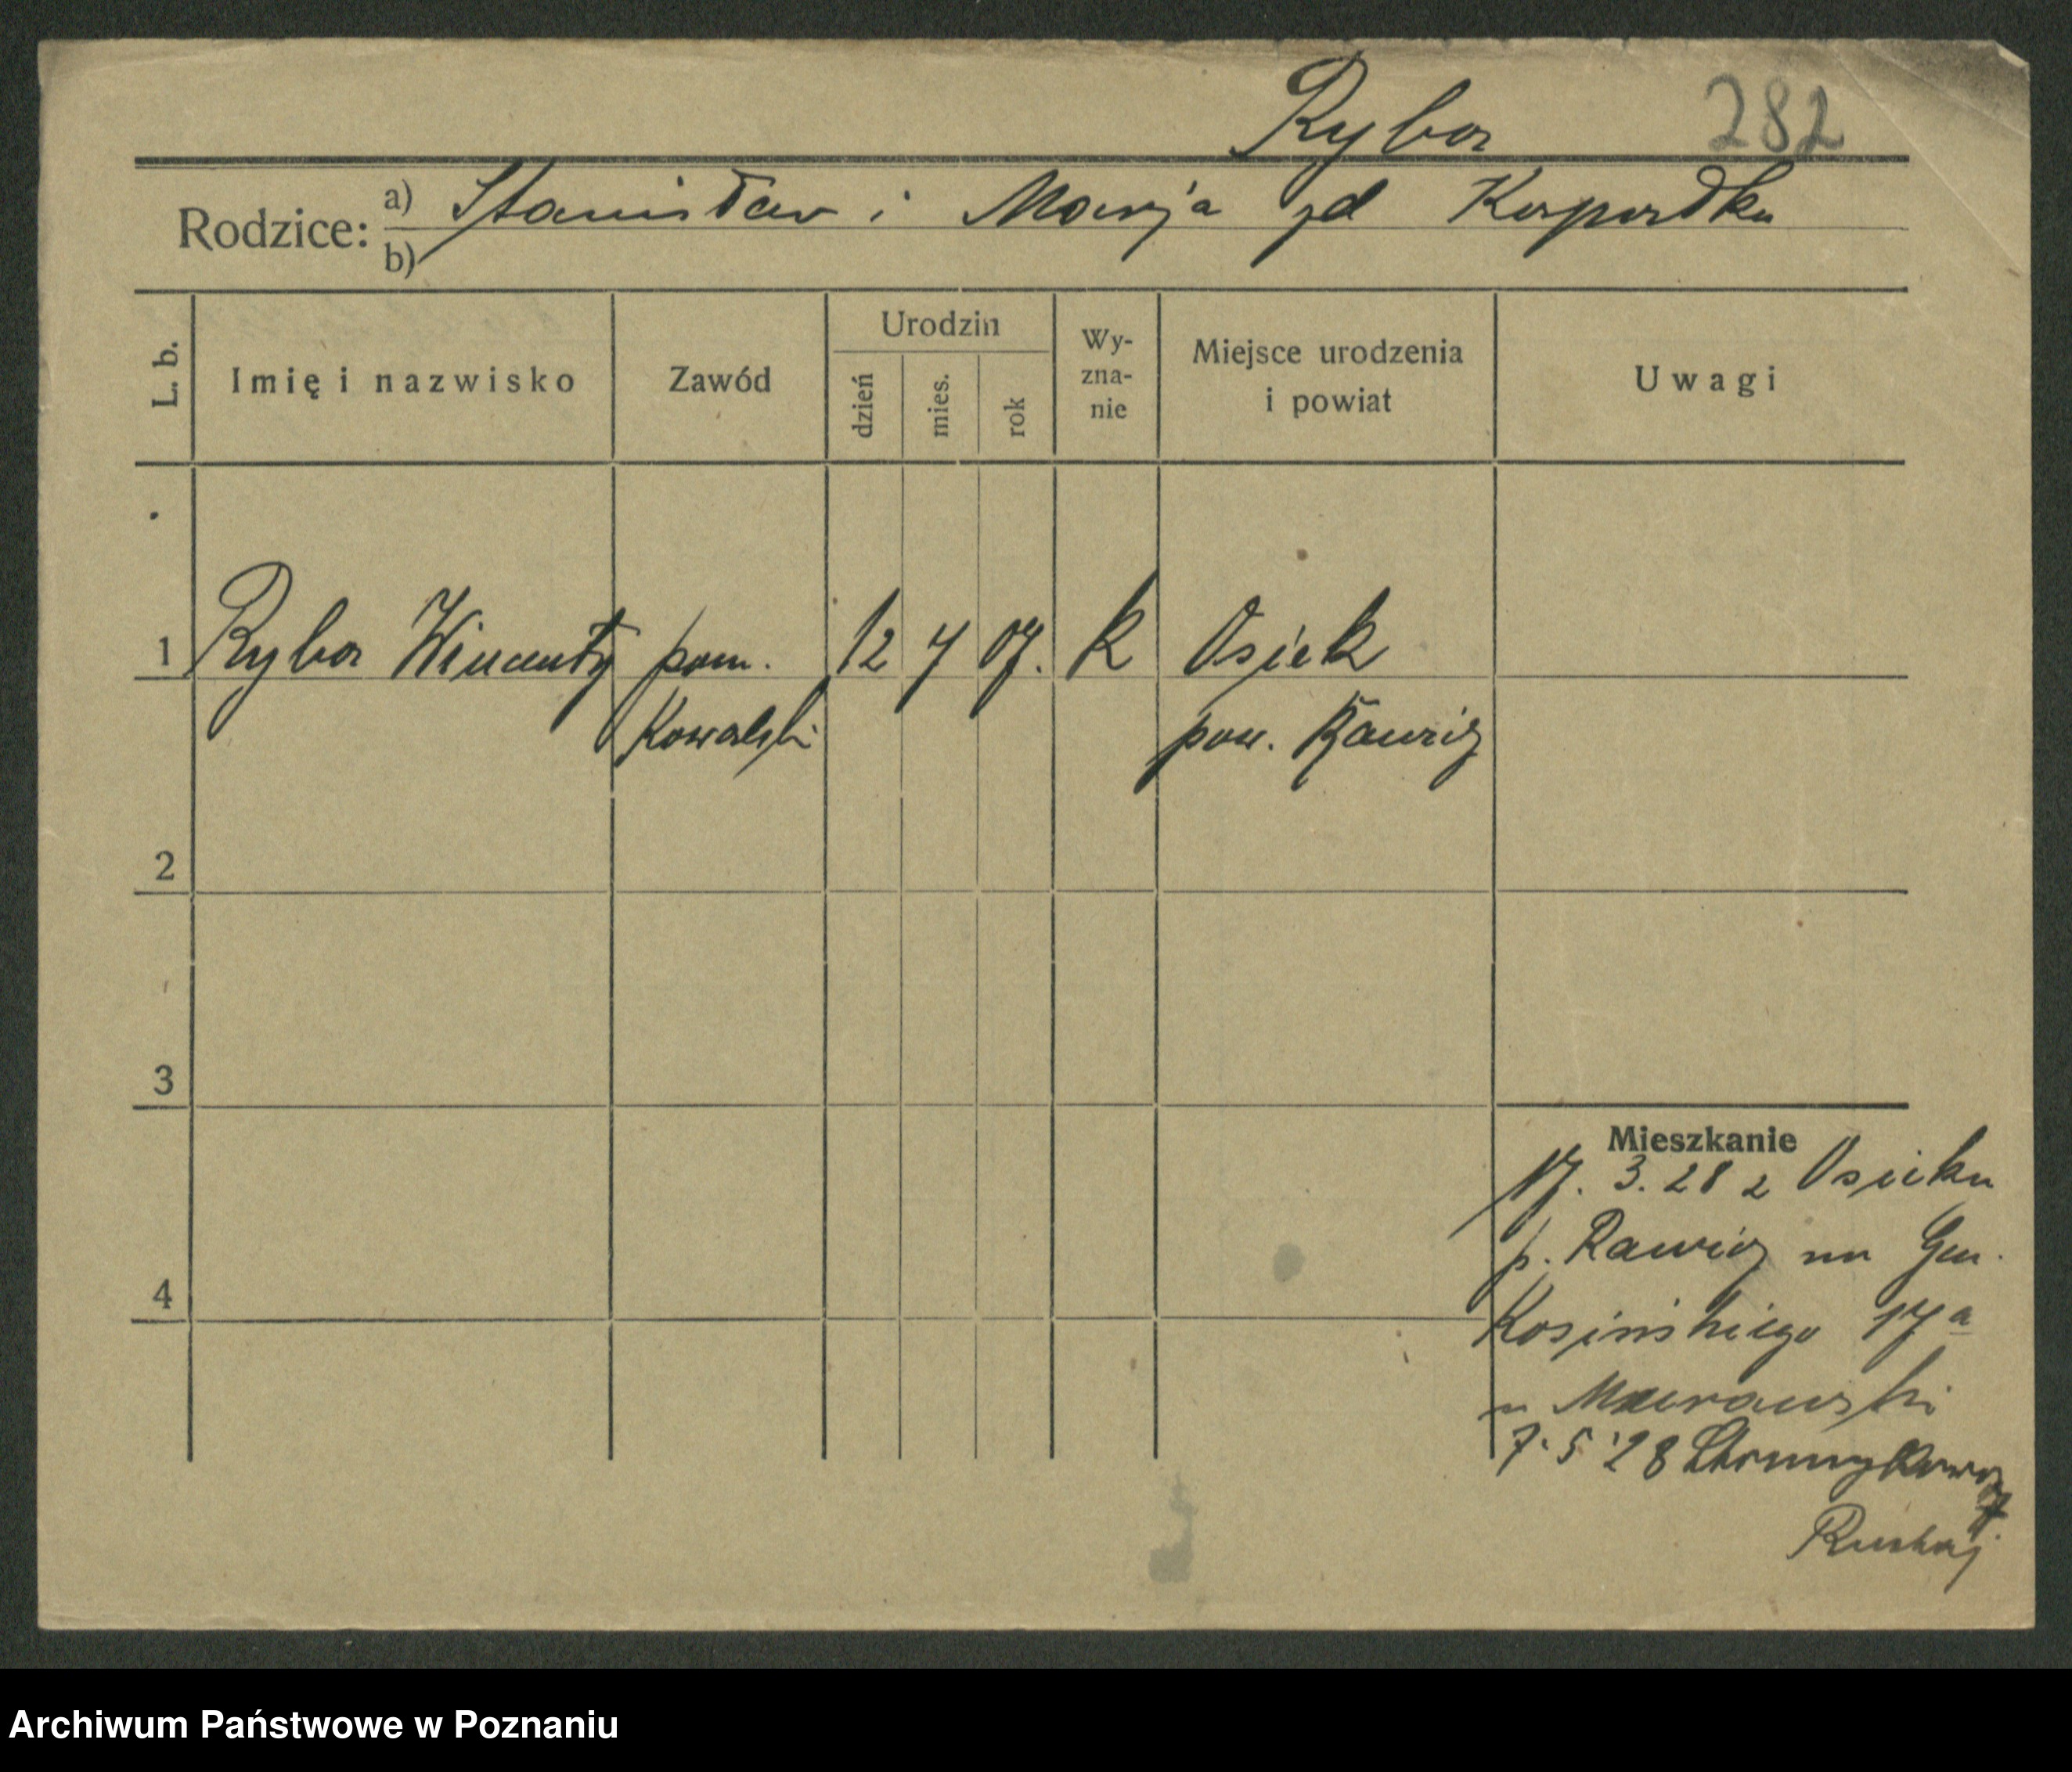 Rybor 282
Rodzice: a) Stanisław i Marja zd
b)
L. b. Imię i nazwisko Zawód Urodzin dzień mies. rok Wy-zna-nie Miejsce urodzenia i powiat Uwagi
1 Rybor Wincenty pom. 12 7 07. k Osiek
Kowalski pow. Rawicz
2
3
Mieszkanie
17. 3. 28 z Osieku
p. Rawicz na Gen.
4
Kosińskiego 17a
u Murawski
7. 5 '28
7.
Archiwum Państwowe w Poznaniu